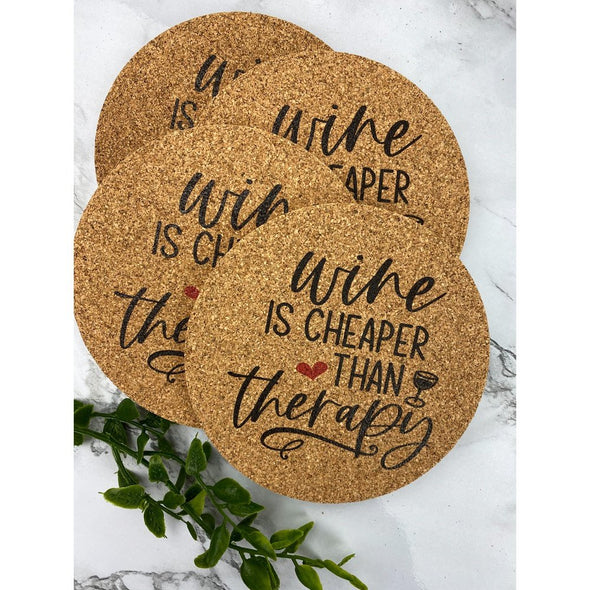 wi
IS
wine
EAPER
wine
IS CH
the
wine
IS CHEAPER
THAN
therapy